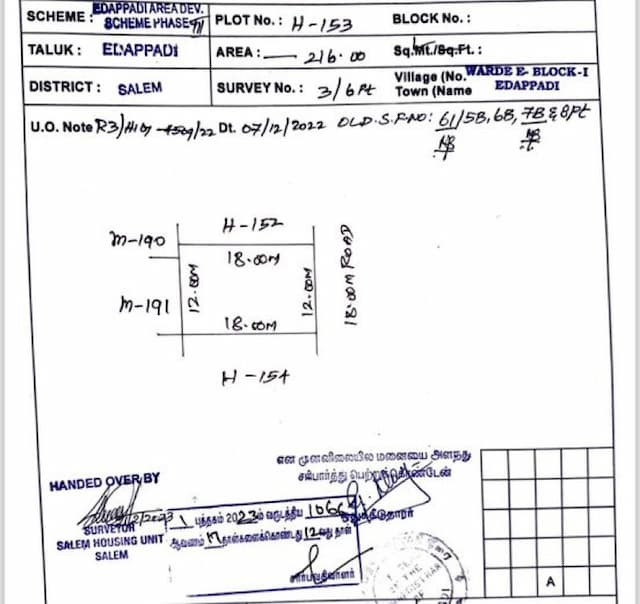 SCHEME : EDAPPADI AREA DEV. SCHEME PHASE III PLOT No. : H-153 BLOCK No. :
TALUK : EDAPPADI AREA : 216.00 Sq.Mt./Sq.Ft. :
DISTRICT : SALEM SURVEY No. : 3/6 Pt Village (No. WARD E- BLOCK-I
Town (Name EDAPPADI
U.O. Note R3/ /22 Dt. 07/12/2022 OLD.S.F.NO: 61/5B, 6B, 7B & 8Pt
H-152
M-190
18.00M
12.00M
12.00M
18.00M ROAD
M-191
18.00M
H-154
என் முன்னிலையில் மனையை அளந்து
சரிபார்த்து பெற்றுக்கொண்டேன்
HANDED OVER BY
SURVEYOR
SALEM HOUSING UNIT
SALEM
1 புத்தகம் 2023ம் வருடத்திய 106
ஆவணம் 17 தாள்களைக்கொண்டது 12வது தாள்
சார்பதிவாளர்
A